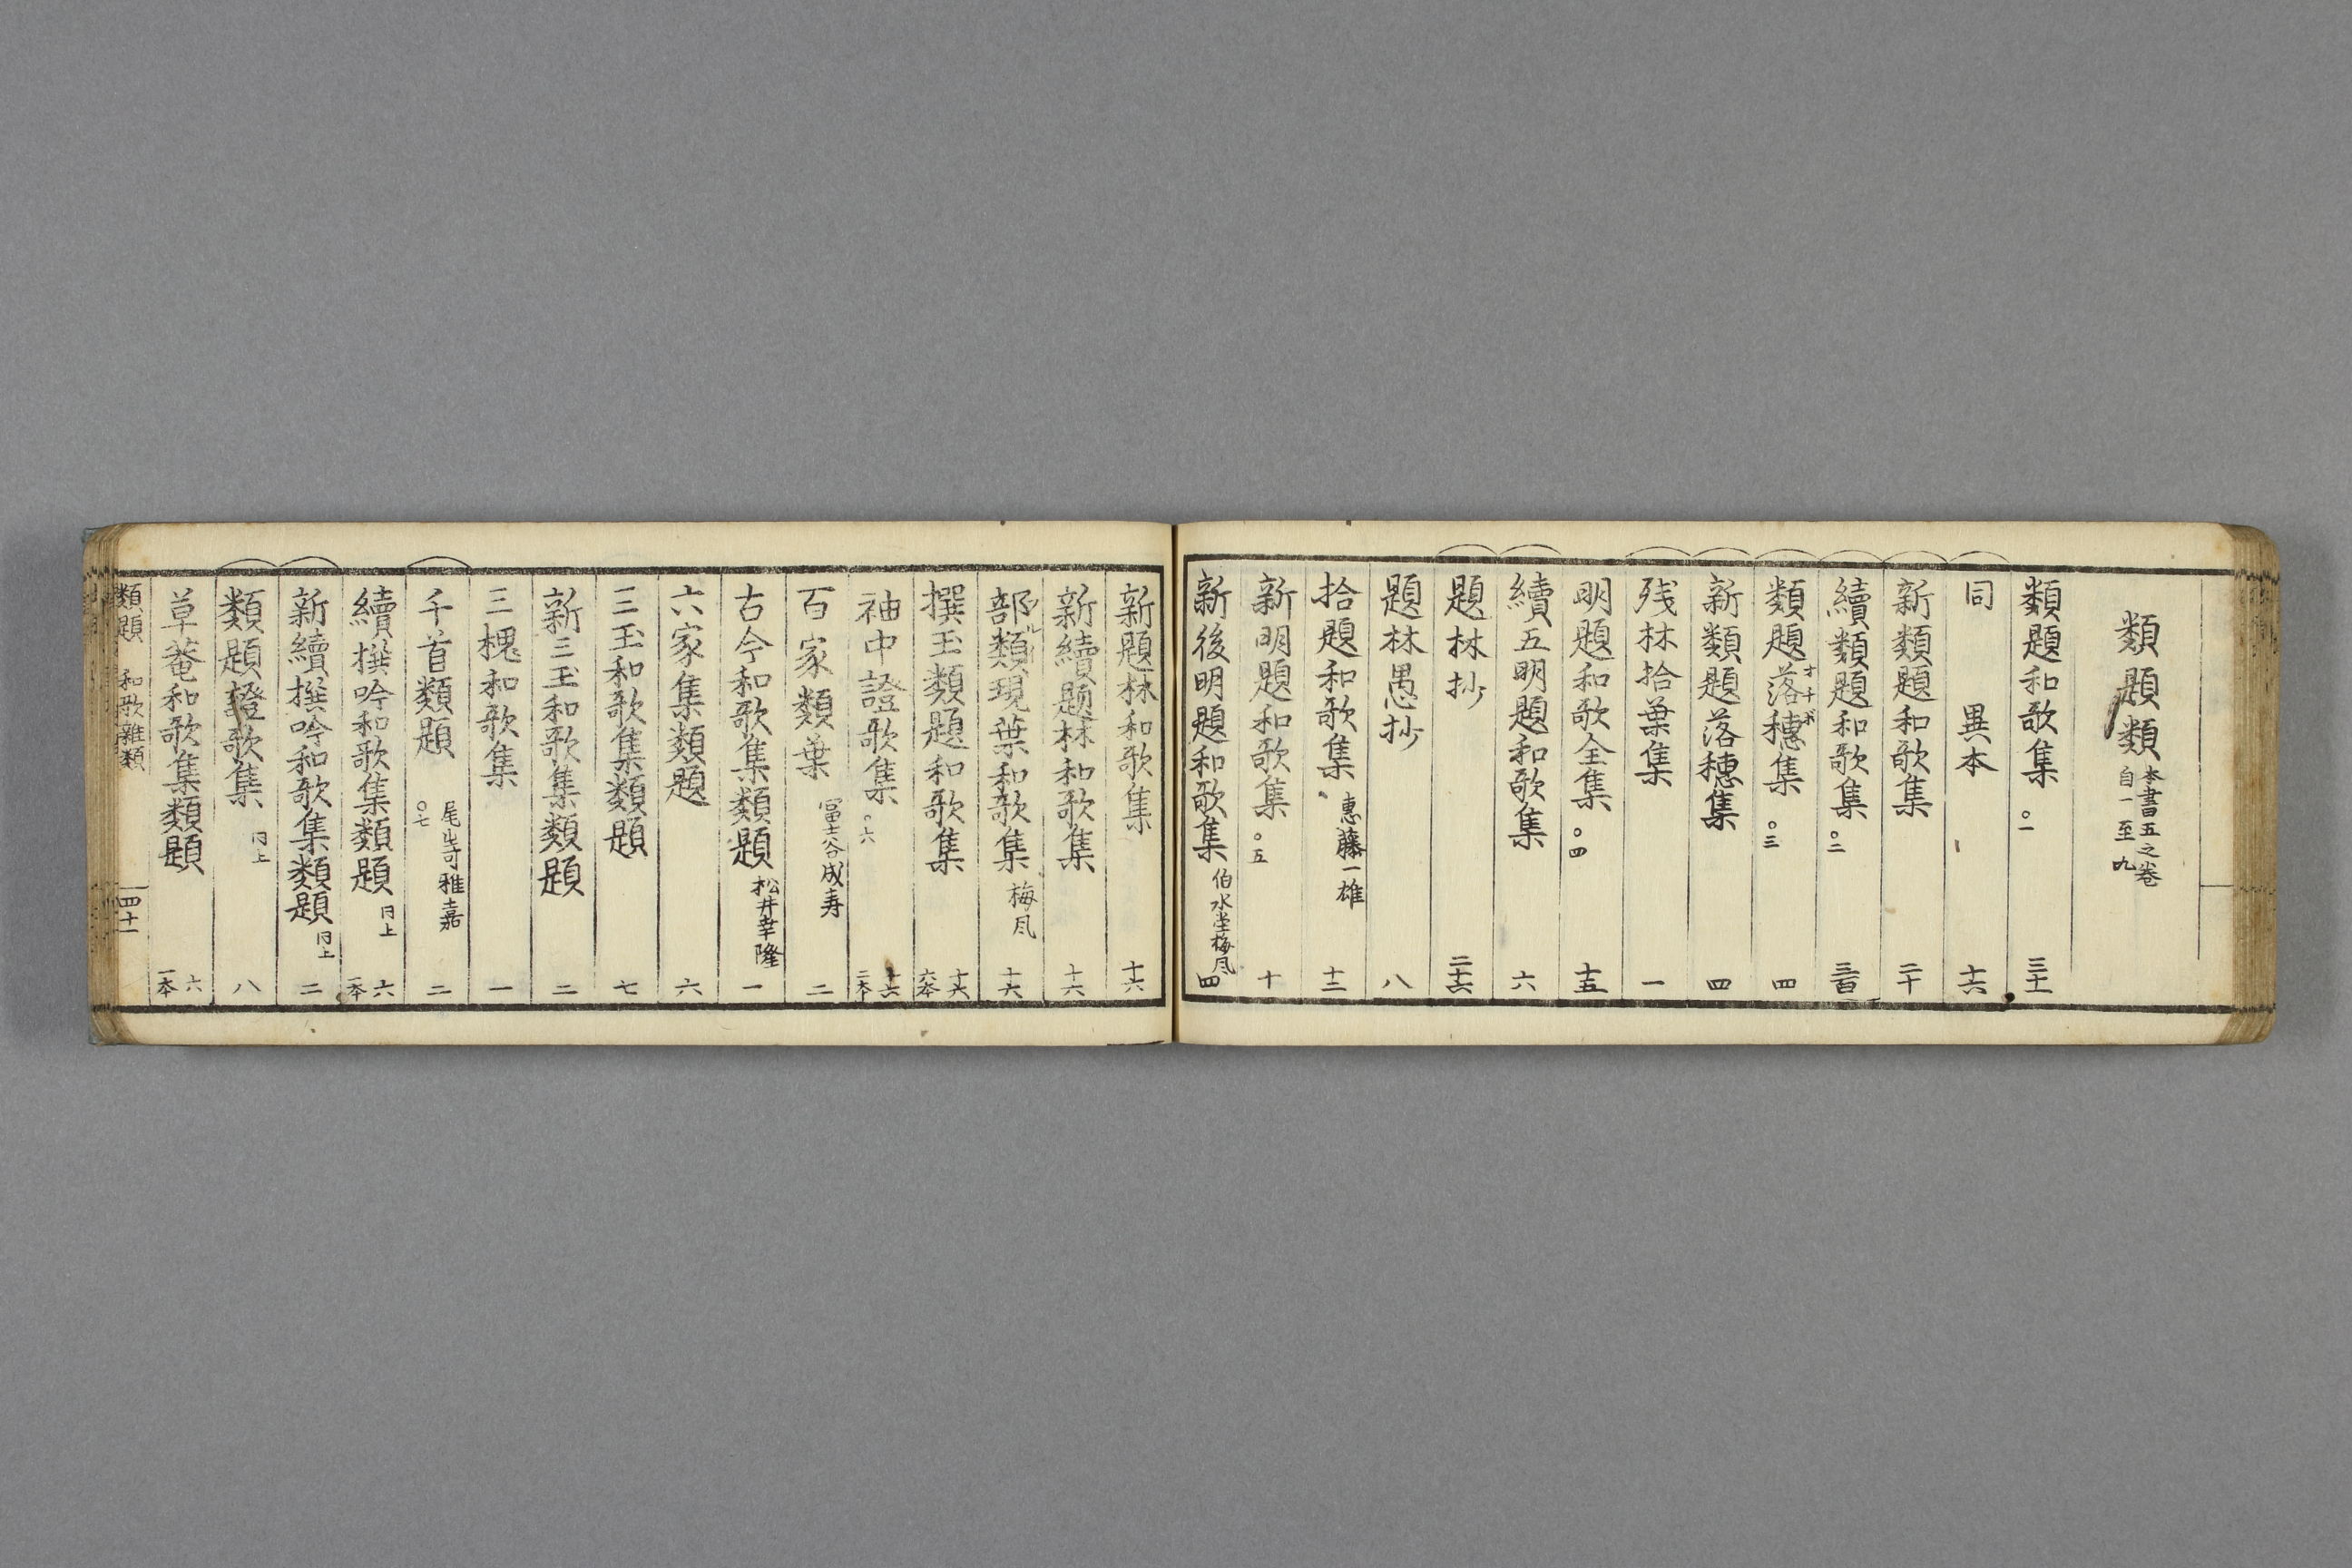 類題類 本書五之巻 自一至九
類題和歌集 。一 三十一
同 異本 十六
新類題和歌集 二十
續類題和歌集 。二 三百
類題落穗集 。三 四
新類題落穗集 四
残林拾葉集 一
明題和歌全集 。四 十五
續五明題和歌集 六
題林抄 二十六
題林愚抄 八
拾題和歌集 惠藤一雄 十二
新明題和歌集 。五 十
新後明題和歌集 伯水堂梅風 四
新題林和歌集 十六
新續題林和歌集 十六
部類現葉和歌集 梅風 十六
撰玉類題和歌集 十六 六本
袖中證歌集 。六 十六 二本
百家類葉 冨士谷成寿 二
古今和歌集類題 松井幸隆 一
六家集類題 六
三玉和歌集類題 七
新三玉和歌集類題 二
三槐和歌集 一
千首類題 尾崎雅嘉 。七 二
續撰吟和歌集類題 同上 六 一本
新續撰吟和歌集類題 同上 二
類題證歌集 同上 八
草菴和歌集類題 六 一本
類題 和歌雜類 四十一